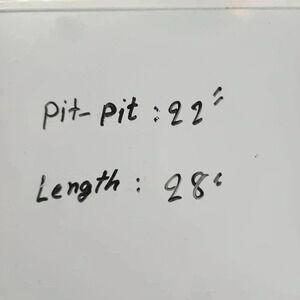 Pit-Pit : 22"
Length : 28"